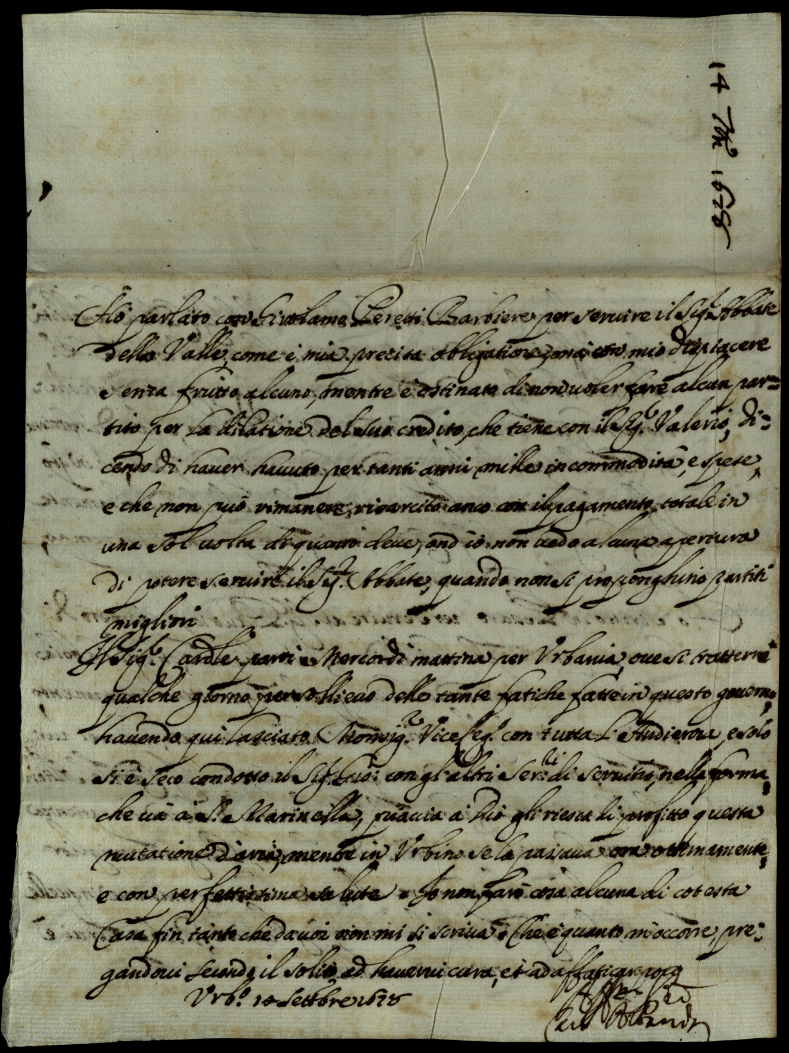 14 7bre 1678
Hò parlato con Girolamo Peretti Barbiere per servire il Sigr Abbate
della Valle, come è mia precisa obligatione, mà con mio dispiacere
senza frutto alcuno, mentre è ostinato di non voler fare alcun par=
tito per la dilatione del suo credito, che tiene con il Sigr. Valerio, di=
cendo di haver havuto per tanti anni mille incommodità, e spese,
e che non può rimanere risarcito anco con il pagamento totale in
una sol volta di quanto deve, ond'io non vedo alcuna apertura
di potere servire il Sigr. Abbate, quando non si proponghino partiti
migliori
Il Sigr. Cardle partì Mercordì mattina per Urbania, ove si tratterrà
qualche giorno per sollievo delle tante fatiche fatte in questo governo,
havendo qui lasciato Monsigre. Vice Legto con tutta l'Audienza, e solo
si è seco condotto il Sigr con gl'altri Serri di servitio, nella forma,
che và à Sta Marinella, piaccia à Dio gli riesca di profitto questa
mutatione d'aria, mentre in Urbino se la passava ottimamente,
e con perfettissima salute. Io non farò cosa alcuna di cotesta
Casa fin tanto che da voi non mi si scriva. Che è quanto m'occorre, pre=
gandovi secondo il solito ad havervi cura, et ad affaticar poco
Urbo. 14 Settbre 1678
Albani